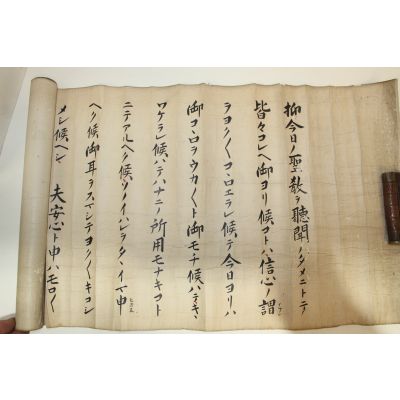 抑今日ノ聖教ヲ聴聞ノタメニトテ
皆々コレヘ御ヨリ候コトハ信心ノ謂
ヲヨク〳〵コヽロエラレ候テ今日ヨリハ
御コヽロヲウカ〳〵ト御モチ候ハテキヽ
ワケラレ候ハテハナニノ所用モナキコト
ニテアルヘク候ソノイハレヲタヽイマ申
ヘク候御耳ヲスマシテヨク〳〵キコシ
メシ候ヘシ 夫安心ト申ハモロ〳〵